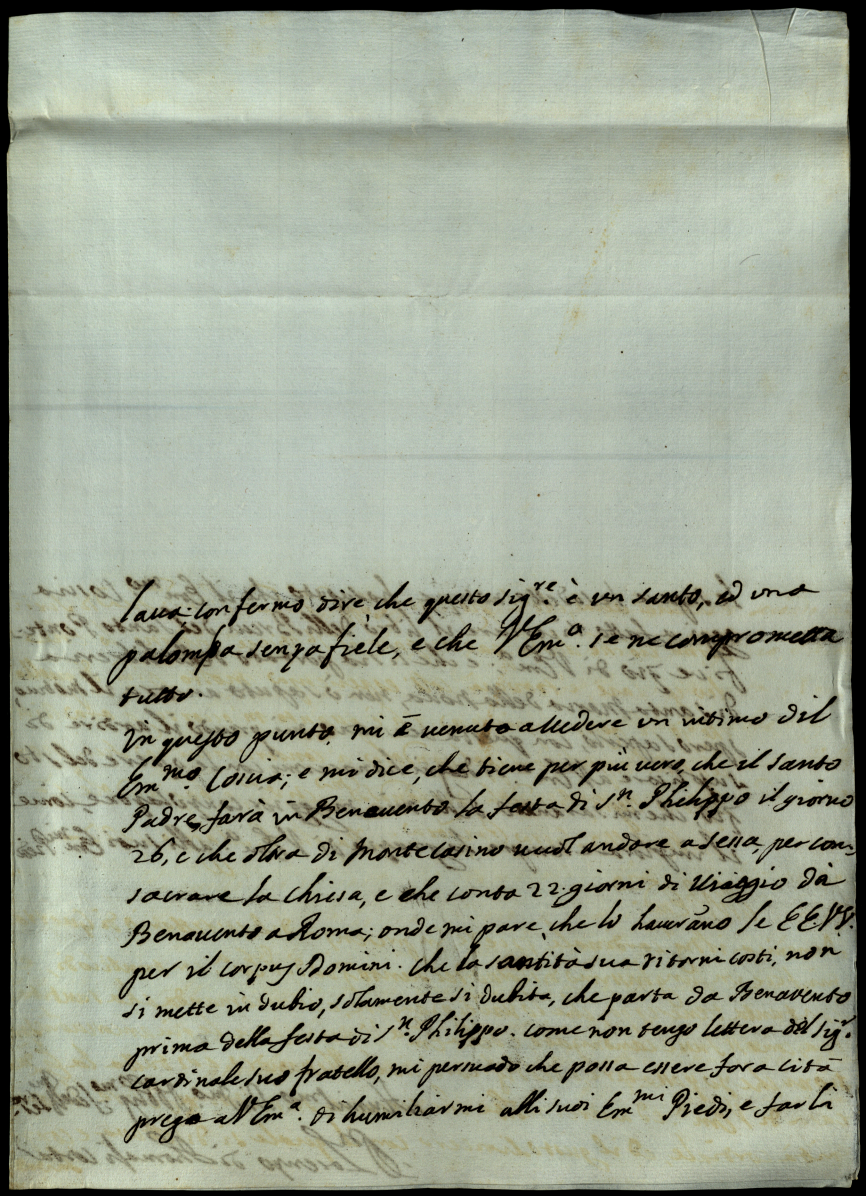 laua; confermo dire, che questo sig.re è un santo, ed una
palomba senza fiele, e che V Em.a se ne comprometta
tutto.
In questo punto mi è venuto a uedere un intimo del
Em.mo Coscia; e mi dice, che tiene per più vero, che il santo
Padre, farà in Beneuento la festa di S.n Philippo il giorno
26, e che oltra di Montecasino uuol andare a sessa, per con,
sacrare la chiesa, e che conta 22 giorni di uiaggio da
Beneuento a Roma; onde mi pare, che lo haverano le EE VV.
per il Corpus Domini. che la santità sua ritorni costi, non
si mette in dubio, solamente si dubita, che parta da Beneuento
prima della festa di S.n Philippo. come non tengo lettera del sig.r
Cardinale suo fratello, mi persuado che possa essere fora cità
prego a V Em.a di humiliarmi alli suoi Em.mi Piedi, e farli